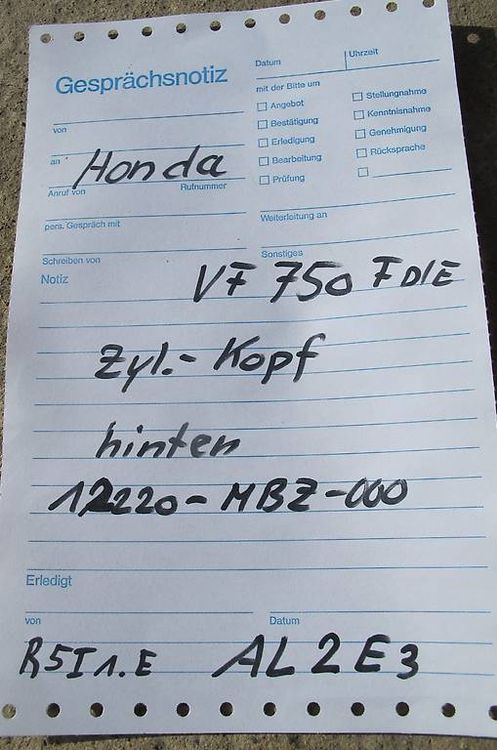 Gesprächsnotiz
Datum
Uhrzeit
mit der Bitte um
Angebot
Stellungnahme
Bestätigung
Kenntnisnahme
Erledigung
Genehmigung
Bearbeitung
Rücksprache
Prüfung
von
an Honda
Anruf von
Rufnummer
pers. Gespräch mit
Weiterleitung an
Schreiben von
Sonstiges
Notiz
VF 750 F D/E
Zyl.- Kopf
hinten
12220-MBZ-000
Erledigt
von
Datum
R5I1.E AL2E3